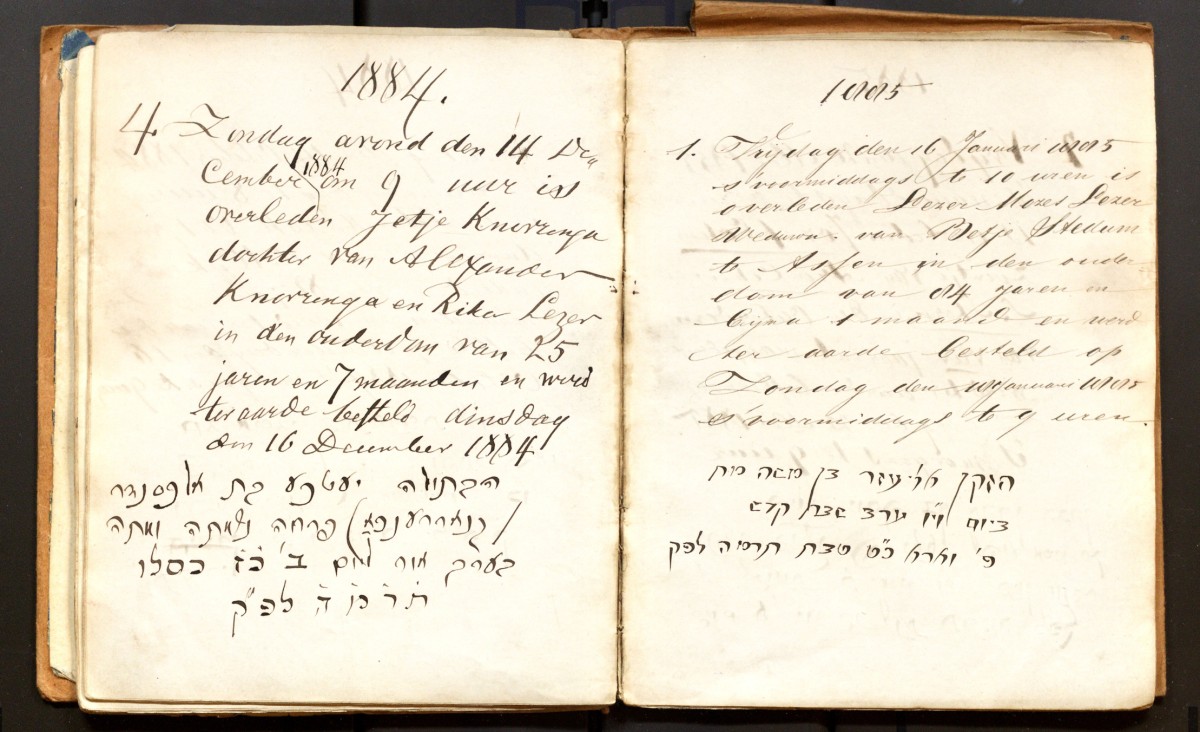 1884.
4. Zondag avond den 14 De„
cember 1884 om 9 uur is
overleden Jetje Knorringa
dochter van Alexander
Knorringa en Rika Lezer
in den ouderdom van 25
jaren en 7 maanden en werd
ter aarde besteld dinsdag
den 16 December 1884
הבתולה יעטכע בת אלכסנדר
(קנאררענגא) פרחה נשמתה
בערב אור ליום ב' כ"ז כסלו
תרמ"ה לפ"ק
1885
1. Vrijdag den 16 Januari 1885
s'voormiddags te 10 uren is
overleden Lezer Mozes Lezer
Weduwn. van Betje Stedum
te Assen in den ouder
dom van 84 jaren en
bijna 1 maand en werd
ter aarde besteld op
Zondag den 18 Januari 1885
s'voormiddags te 9 uren.
הזקן אליעזר בן משה מת
ביום ו' ערב שבת קדש
פ' וארא כ"ט טבת תרמה לפק